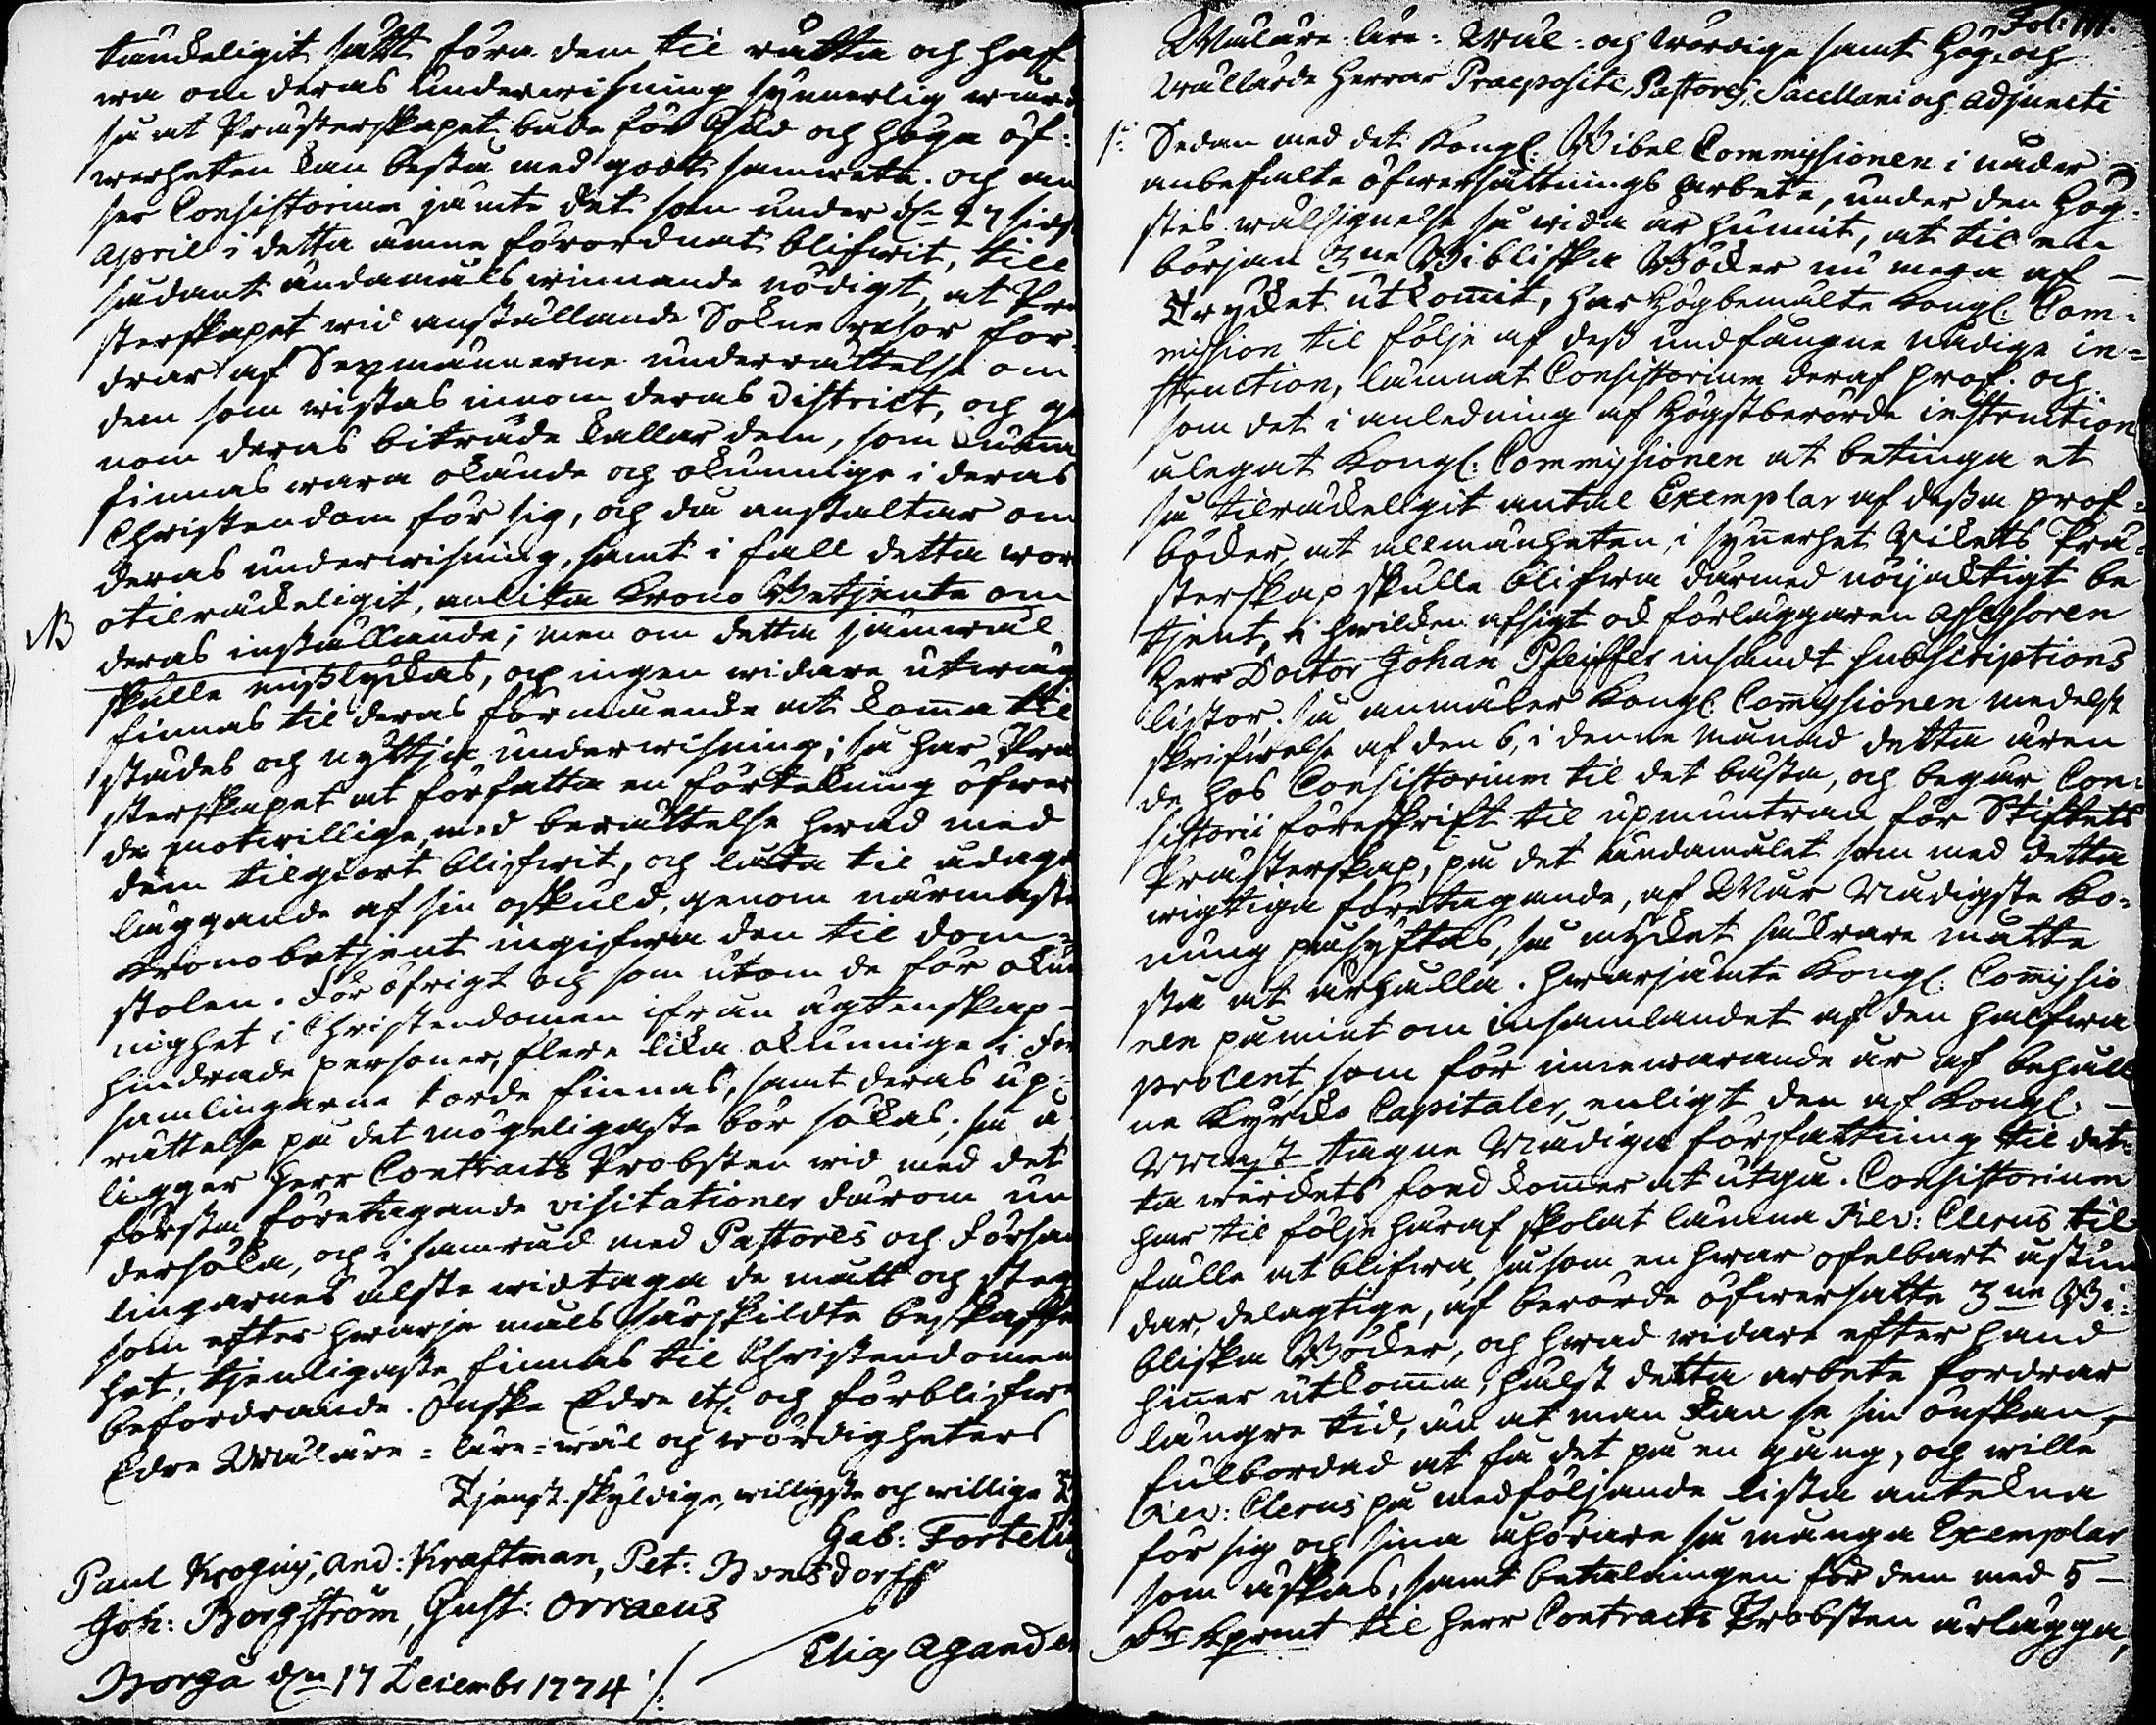 kändeligit sätt föra dem til rätta och haf
wa om deras underwisning synnerlig wård
så at Prästerskapet både för Gud och höga öf-
werheten kan bestå med godt samwete. och an
ser Consistorium jämte det som under d:n 27 sidst
April i detta ämne förordnat blifwit, till
sådant ändamåls winnande nödigt, at Prä
sterskapet wid anställande Sokne resor for-
drar af Sexmännerne underrättelse om
dem som wistas innom deras District, och ge
nom deras biträde kallar dem, som kunna
finnas wara okände och okunnige i deras
Christendom för sig, och då anstaltar om
deras underwisning, samt i fall detta wore
otilräckeligit, anlita Krono Betjente om
NB deras inställande; men om detta jämwäl
skulle misslyckas, och ingen widare utwäg
finnas til deras förmående at komma til
städes och nyttja underwisning; så har Prä
sterskapet at författa en förtekning öfwer
de motwillige, med berättelse hwad med
dem tilgiort blifwit, och låta til ådaga
läggande af sin oskuld, genom närmaste
Kronobetjent ingifwa den til dom-
stolen. För öfrigt och som utom de för okun
nighet i Christendomen ifrån ägtenskap-
hindrade personer, flere lika okunnige i För
samlingarne torde finnas, samt deras up-
rättelse på det mögeligaste bör sökas; så å-
ligger Herr Contracts Probsten wid med det
första företagande visitationer därom un
dersöka, och i samråd med Pastores och Försam
lingarnes älste widtaga de mått och steg
som efter hwarje måls särskildte beskaffen
het, tjenligaste finnas til Christendomens
befordrande. Önske Edre etc. och förblifwe
Edre Wäläre- läre- wäl och wördigheters
Tjenst-skyldige, willigste och willige T
Gab: Fortelius
Paul Krogius, And: Kraftman, Pet: Bonsdorff
Joh: Borgström, Gust: Orraeus
Elias Agander
Borgå d:n 17 Decembr 1774 /.
Fol: 111.
Wäläre- läre- Wäl- och Wördige samt Hög- och
Wällärde Herrar Praepositi, Pastores, Sacellani och Adjuncti
1:o Sedan med det Kongl: Bibel Commissionen i nåder
anbefalte öfwersättnings arbete, under den Hög-
stes wälsignelse så wida är hunnit, at til en
början 3:ne Bibliska Böcker nu mera af -
Trycket utkommit, har Högbemälte Kongl: Com-
mission til följe af dess undfångne nådige in-
struction, lämnat Consistorium deraf prof. och
som det i anledning af Högstberörde instruction
ålegat Kongl: Commissionen at betinga et
så tilräckeligit antal Exemplar af dessa prof-
böcker, at allmänheten, i synnerhet Rikets Prä-
sterskap skulle blifwa därmed nöijacktigt be
tjent, i hwilken afsigt ock förläggaren Assessoren
Herr Doctor Johan Pfeiffer insändt subscriptions
listor; så anmäler Kongl: Commissionen medelst
skrifwelse af den 6, i denne månad detta ären
de hos Consistorium til det bästa, och begär Con-
sistorii föreskrift til upmuntran för Stiftets
Prästerskap, på det ändamålet som med detta
wigtiga företagande, af Wår Nådigste Ko-
nung påsyftas, så mycket säkrare måtte
stå at ärhålla. Hwarjämte Kongl: Commissio
nen påmint om insamlandet af den halfwa
procent, som för innewarande år af behåll
ne Kyrcko Capitaler, enligt den af Kongl: -
Maj:st tagne Nådiga författning til det-
ta wärckets fond kommer at utgå. Consistorium
har til följe häraf skolat lämna Rev: Clerus til
fälle at blifwa, såsom en hwar ofelbart åstun
dar, delagtige, af berörde öfwersatte 3:ne Bi-
bliska Böcker, och hwad widare efter hand
hinner utkomma, hälst detta arbete fordrar
längre tid, än at man kan se sin önskan -
fulbordad at få det på en gång, och wille
Rev: Clerus på medföljande lista antekna
för sig och sina åhörare så många Exemplar
som åskas, samt betalningen för dem med 5 -
til Herr Contracts Probsten ärlägga,